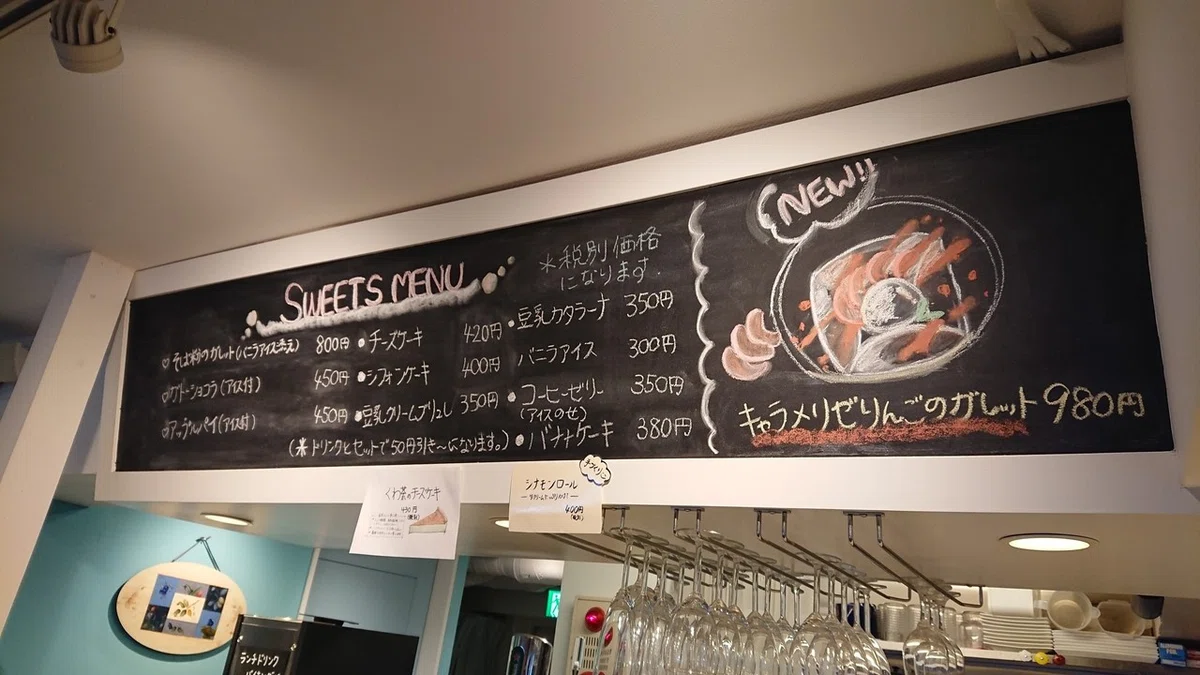 SWEETS MENU
*税別価格
になります.
そば粉のガレット(バニラアイス添え) 800円
ガトーショコラ(アイス付) 450円
アップルパイ(アイス付) 450円
・チーズケーキ 420円
・シフォンケーキ 400円
・豆乳クリームブリュレ 350円
(※ドリンクとセットで50円引き〜になります。)
・豆乳カタラーナ 350円
バニラアイス 300円
・コーヒーゼリー 350円
(アイスのせ)
・バナナケーキ 380円
NEW!!
キャラメリゼりんごのガレット 980円
くわ茶のチーズケーキ
430円
(税別)
手づくり
シナモンロール
400円
(税別)
ランチドリンク